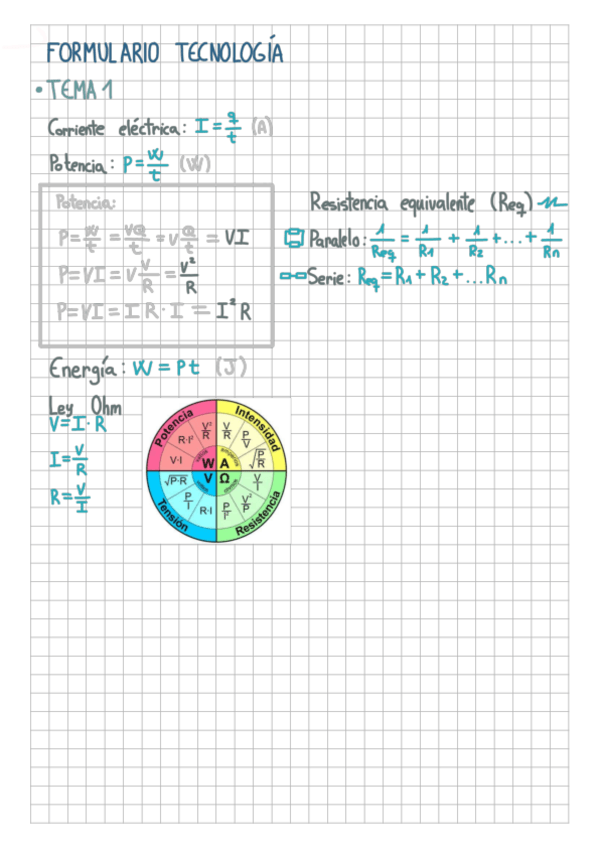 FORMULARIO TECNOLOGÍA
• TEMA 1
Corriente eléctrica: I = q/t (A)
Potencia: P = W/t (W)
Potencia:
P = W/t = VQ/t = V Q/t = VI
P = VI = V V/R = V²/R
P = VI = I R · I = I² R
Resistencia equivalente (Req)
Paralelo: 1/Req = 1/R1 + 1/R2 + ... + 1/Rn
Serie: Req = R1 + R2 + ... Rn
Energía: W = Pt (J)
Ley Ohm
V = I · R
I = V/R
R = V/I
Potencia
V·I
R·I²
V²/R
W
Intensidad
V/R
P/V
√P/R
A
Tensión
√P·R
P/I
R·I
V
Resistencia
V/I
V²/P
P/I²
Ω